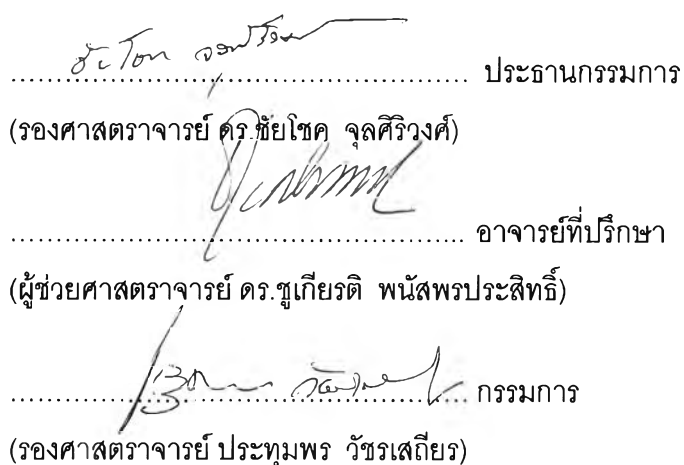 ชัยโชค จุลศิริวงศ์
................................................ ประธานกรรมการ
(รองศาสตราจารย์ ดร.ชัยโชค จุลศิริวงศ์)
................................................ อาจารย์ที่ปรึกษา
(ผู้ช่วยศาสตราจารย์ ดร.ชูเกียรติ พนัสพรประสิทธิ์)
................................................ กรรมการ
(รองศาสตราจารย์ ประทุมพร วัชรเสถียร)